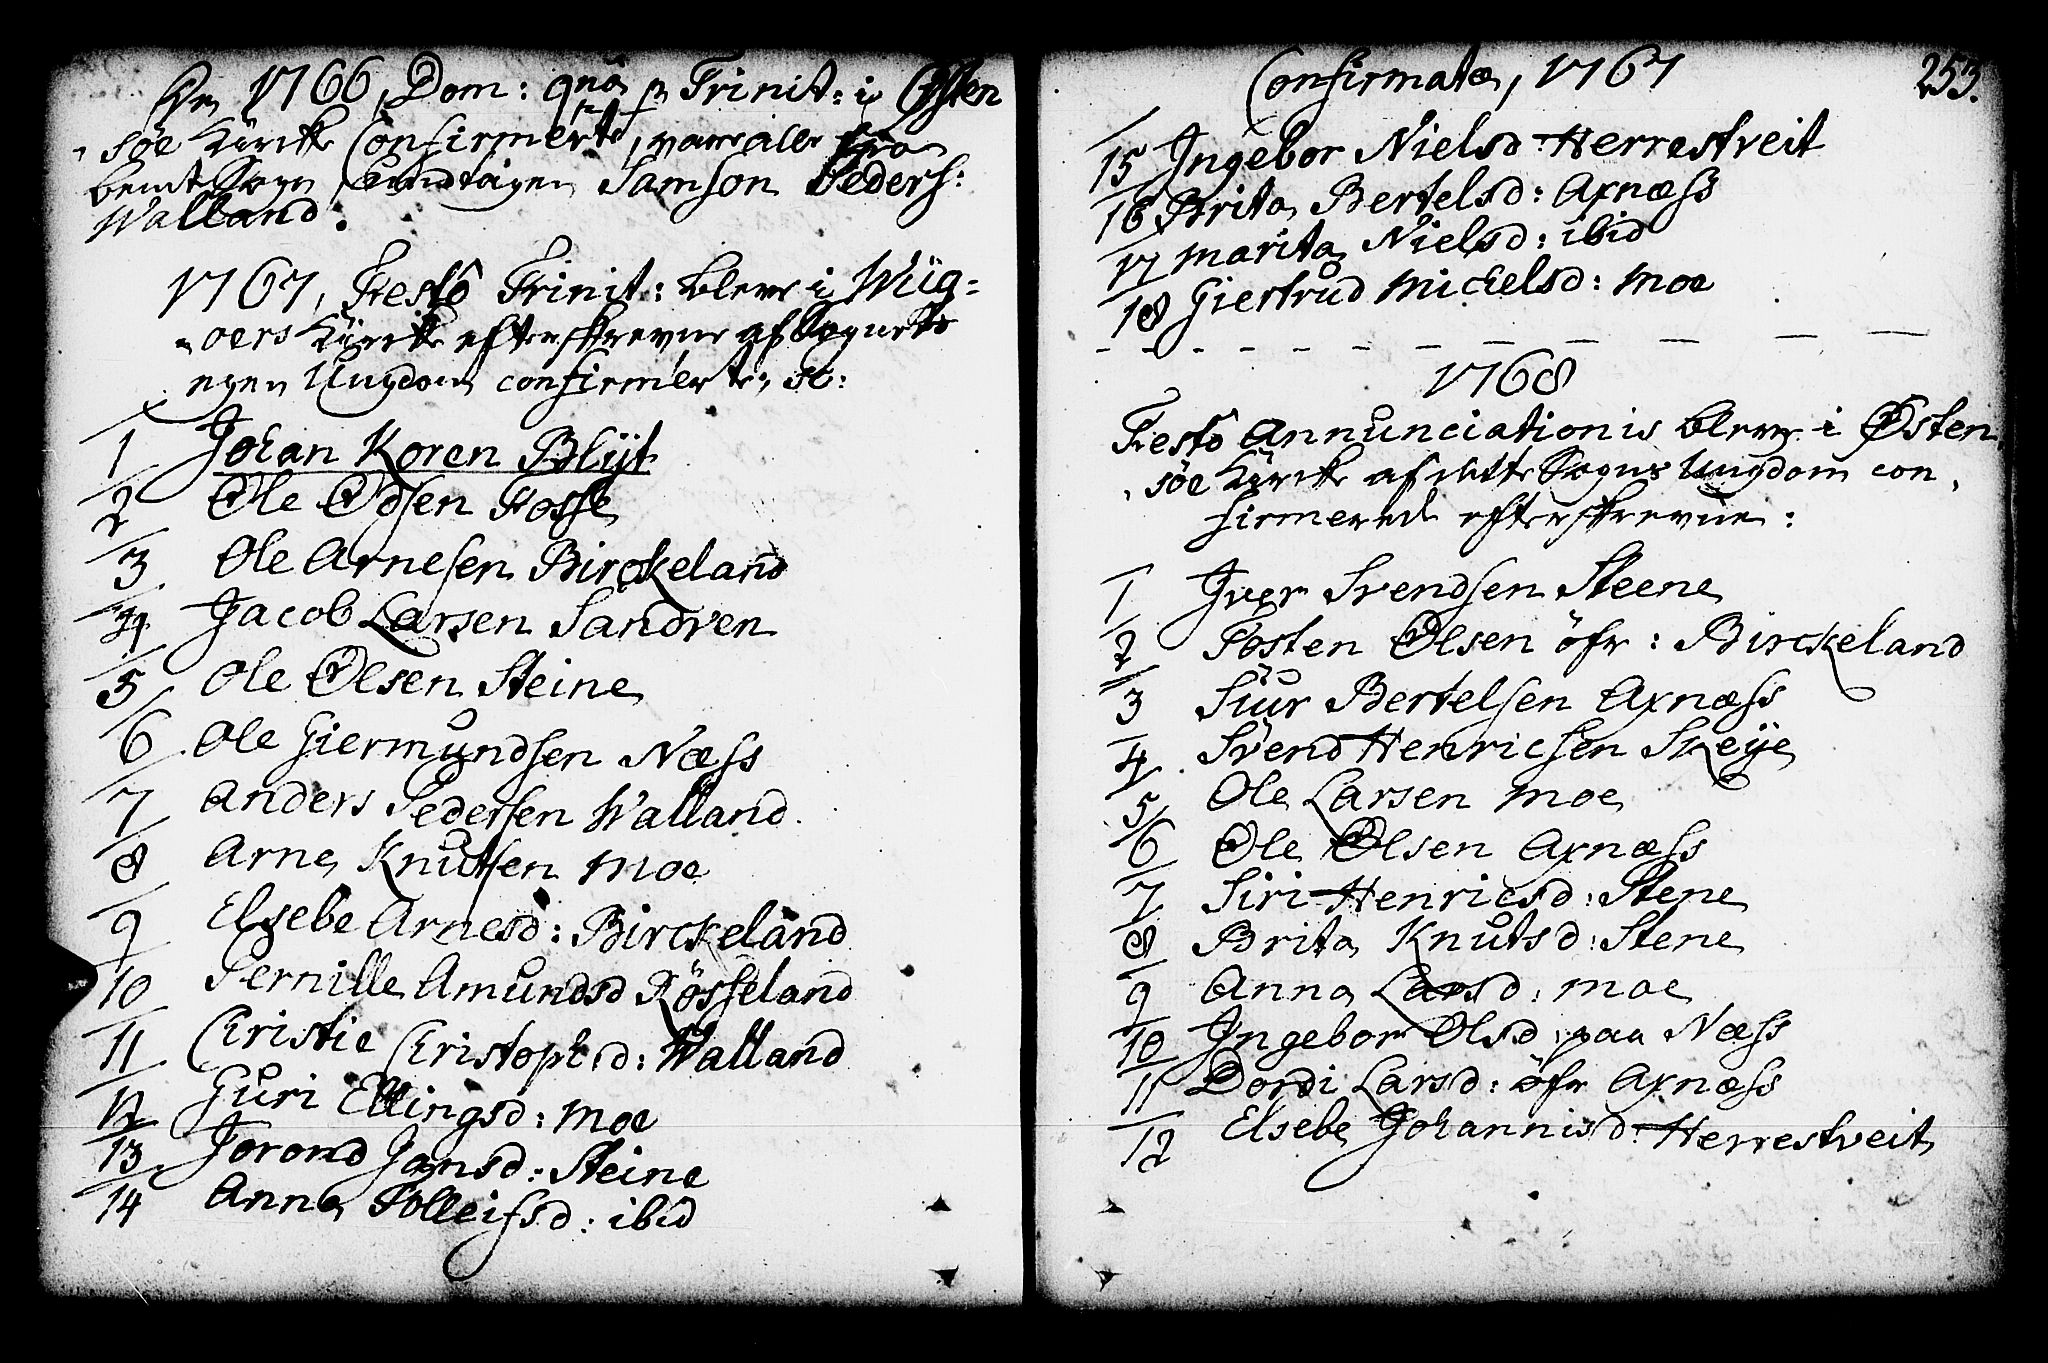 1766, Dom: 9nâ p Trinit: i Østen
søe Kircke Confirmerte, vare alle fra
bemt Sogn undtagen Samson Peders:
Walland.
1767, Festô Trinit: bleve i Wiig=
=oers Kircke efterskrevne af Sognets
egen Ungdom confirmerte, sc:
1 Johan Koren Blijt
2 Ole Odsen Fosse
3 Ole Arnesen Birckeland
4 Jacob Larsen Sandven
5 Ole Olsen Steine
6 Ole Giermundsen Næss
7 Anders Pedersen Walland
8 Arne Knutsen Moe
9 Elsebe Arnesd: Birckeland
10 Pernille Amundsd Kösseland
11 Christie Christophd: Walland
12 Guri Ellingsd: Moe
13 Jorond Jansd: Steine
14 Anna Tolleifsd: ibid
Confirmatæ, 1767
253.
15 Ingebor Nielsd Herrestveit
16 Brita Bertelsd: Axnæss
17 Marita Nielsd: ibid
18 Giertrud Michelsd: Moe
1768
Festô Annunciationis bleve i Østen
søe Kircke af dette Sogns Ungdom con
firmerede efterskrevne:
1 Iver Svendsen Steene
2 Tosten Olsen öfr: Birckeland
3 Siur Bertelsen Axnæss
4 Svend Henricsen Skeije
5 Ole Larsen Moe
6 Ole Olsen Axnæss
7 Siri Henricsd: Stene
8 Brita Knutsd: Stene
9 Anna Larsd: Moe
10 Ingebor Olsd: paa Næss
11 Dordi Larsd: öfr Axnæss
12 Elsebe Johannisd: Herrestveit